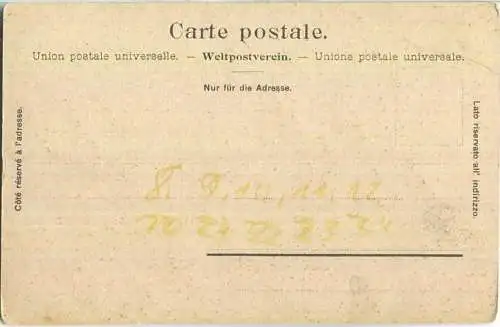 Carte postale.
Union postale universelle. — Weltpostverein. — Unione postale universale.
Nur für die Adresse.
Côté réservé à l'adresse.
Lato riservato all'
indirizzo.